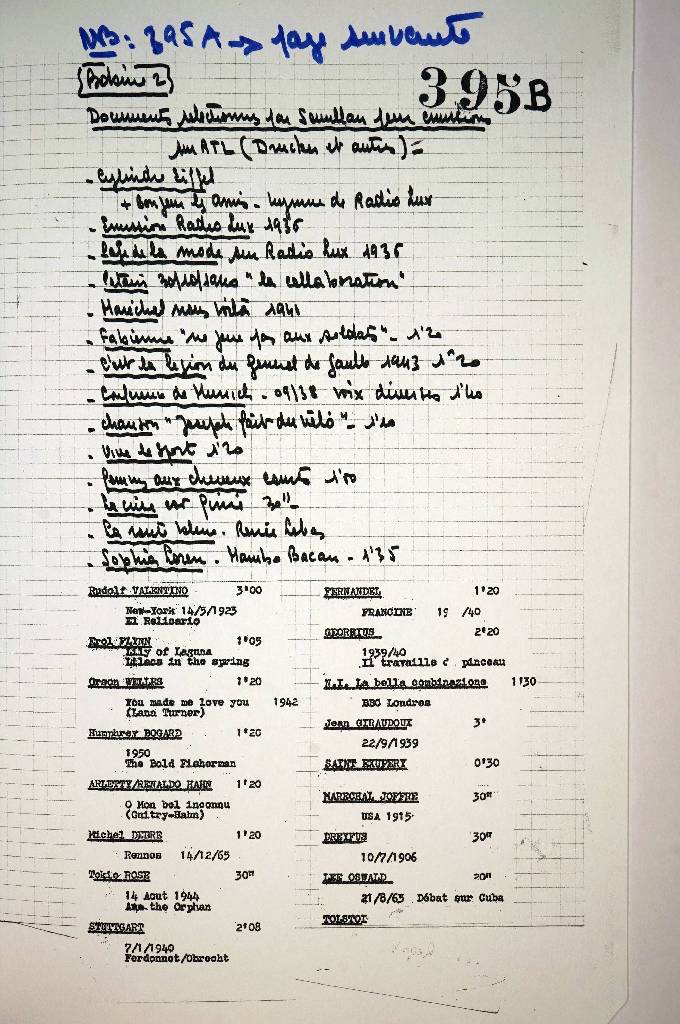 NB: 395A → page suivante
Bobine 2
395B
Documents sélectionnés par Sevullan pour émissions
sur RTL (Drucker et autres) =
- Cylindre Eiffel
+ Bonjour les amis - hymne de Radio Lux
- Emission Radio Lux 1936
- de la mode sur Radio Lux 1936
- Pétain 30/10/1940 "la collaboration"
- Maréchal nous voilà 1941
- Fabienne "ne joue pas aux soldats" - 1'20
- C'est la légion du général de Gaulle 1943 1'20
- Conférence de Munich - 09/38 voix diverses 1'40
- chanson "Joseph fait du vélo" - 1'10
- Vive le sport 1'20
- aux cheveux courts 1'00
- La est finie 30"
- La route bleue - Renée Lebas
- Sophia Loren - Mambo Bacan - 1'35
Rudolf VALENTINO 3'00
New-York 14/5/1923
El Relicario
Erol FLYNN 1'05
Lily of Laguna
Lilacs in the spring
Orson WELLES 1'20
You made me love you 1942
(Lana Turner)
Humphrey BOGARD 1'20
1950
The Bold Fisherman
ARLETTY/RENALDO HAHN 1'20
O Mon bel inconnu
(Guitry-Hahn)
Michel DEBRE 1'20
Rennes 14/12/65
Tokio ROSE 30"
14 Aout 1944
the Orphan
STUTTGART 2'08
7/1/1940
Ferdonnet/Obrecht
FERNANDEL 1'20
FRANCINE 19 /40
GEORGIUS 2'20
1939/40
Il travaille pinceau
N.I. La bella combinazione 1'30
BBC Londres
Jean GIRAUDOUX 3'
22/9/1939
SAINT EXUPERY 0'30
MARECHAL JOFFRE 30"
USA 1915
DREYFUS 30"
10/7/1906
LEE OSWALD 20"
21/8/63 Débat sur Cuba
TOLSTOI